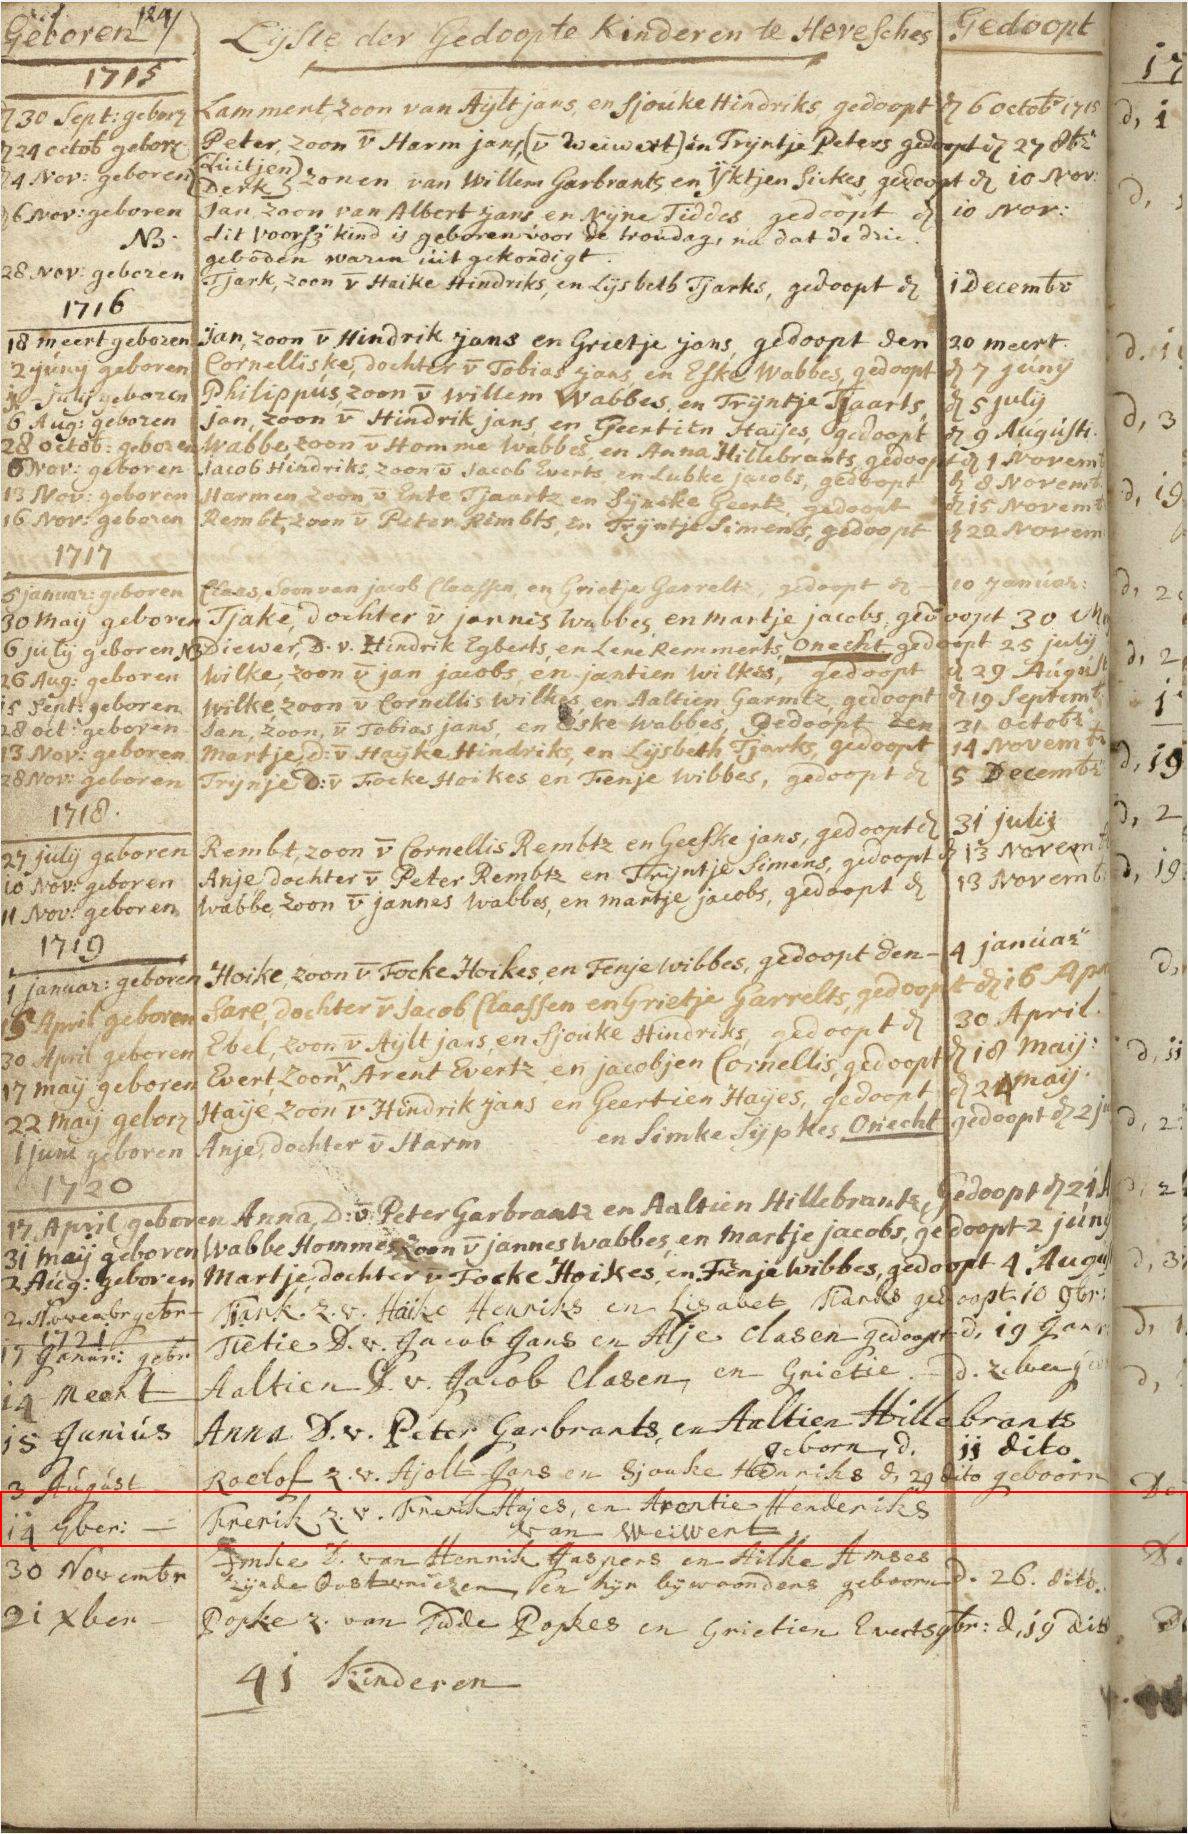 Geboren 124
Lijste der Gedoopte Kinderen te Heveskes
Gedoopt
1715
dͤ 30 Sept: geborͤ Lamment, zoon van Aijlt jans, en Sjouke Hindriks gedoopt dͤ 6 octobr 1715
dͤ 24 octob geborͤ Peter, zoon v̄ Harm jans, (v̄ Weiwert) en Trijntje Peters gedoopt dͤ 27 8br
Luitjen
4 Nov: geboren Derk zonen van Willem Garbrants en Ijktjen Sickes, gedoopt dͤ 10 Nov:
6 Nov: geboren Jan, zoon van Albert jans en Nijne Tiddes gedoopt dͤ 10 Nov:
NB. dit voorsz kind is geboren voor de troudag, na dat de drie
geboden waren uit gekondigt.
28 Nov: geboren Tjark, zoon v̄ Haike Hindriks, en Lijsbeth Tjarks, gedoopt dͤ 1 Decembr
1716
18 meert geboren Jan, zoon v̄ Hindrik jans en Grietje jans, gedoopt den 20 meert.
2 junij geboren Cornelliske, dochter v̄ Tobias jans, en Eske Wabbes, gedoopt dͤ 7 junij
julij geboren Philippus, zoon v̄ Willem Wabbes, en Trijntje Tjaarts, dͤ 5 julij
6 Aug: geboren jan, zoon v̄ Hindrik jans en Geertien Haijes, gedoopt dͤ 9 Augusti.
28 octob: geboren Wabbe, zoon v Homme Wabbes, en Anna Hillebrants, gedoopt dͤ 1 Novemb
6 Nov: geboren Jacob Hindriks, zoon v̄ Jacob Everts, en Lubke jacobs, gedoopt dͤ 8 Novemb
13 Nov: geboren Harmen, zoon v Ente Tjaartz en Sijncke Geertz, gedoopt dͤ 15 Novemb
16 Nov: geboren Rembt, zoon v̄ Peter Rimbts, en Trijntje Simens, gedoopt dͤ 22 Novem
1717
5 januar: geboren Claas, Soon van jacob Claassen, en Grietje Garrelts, gedoopt dͤ 10 januar:
30 maij geboren Tjake, dochter v̄ jannes Wabbes, en martje jacobs, gedoopt 30 M
6 julij geboren NB Diewer, D. v. Hindrik Egberts, en Lene Remmerts, Onecht gedoopt 25 julij
26 Aug: geboren Wilke, zoon v̄ jan jacobs, en jantien Wilkes, gedoopt dͤ 29 August
15 Sept: geboren Wilke, zoon v Cornellis Wilkes, en Aaltien Garmtz, gedoopt dͤ 19 Septemb
28 oct: geboren Jan, zoon, v̄ Tobias jans, en Eske Wabbes, Gedoopt den 31 octobr
13 Nov: geboren Martje, d: v̄ Haijke Hindriks, en Lijsbeth Tjarks, gedoopt 14 Novembr
28 Nov: geboren Trijnje D: v̄ Focke Hoikes en Fenje Wibbes, gedoopt dͤ 5 Decembr
1718.
27 julij geboren Rembt, zoon v̄ Cornellis Rembtz en Geeske jans, gedoopt dͤ 31 julij
10 Nov: geboren Anje, dochter v̄ Peter Rembtz en Trijntje Simens, gedoopt dͤ 13 Novemb
11 Nov: geboren Wabbe, zoon v̄ jannes Wabbes, en martje jacobs, gedoopt dͤ 13 Novemb
1719
1 januar: geboren Hoike, zoon v̄ Focke Hoikes, en Fenje wibbes, gedoopt den - 4 januar
April geboren Sare, dochter v̄ Jacob Claassen en Grietje Garrelts, gedoopt dͤ 16 Apr
30 April geboren Ebel, zoon v Aijlt jans, en Sjouke Hindriks, gedoopt dͤ 30 April.
17 maij geboren Evert, Zoon v̄ Arent Evertz, en jacobjen Cornellis, gedoopt dͤ 18 maij:
22 maij geborͤ Haije, zoon v Hindrik jans en Geertien Haijes, gedoopt dͤ 24 maij.
1 juni geboren Anje, dochter v̄ Harm en Simke Sijpkes, Onecht gedoopt dͤ 2 ju
1720
17 April geboren Anna, D: v̄ Peter Garbrantz en Aaltien Hillebrantz, Gedoopt dͤ 21 A
31 maij geboren Wabbe Hommes, zoon v̄ jannes Wabbes, en martje jacobs, gedoopt 2 junij
2 Aug: geboren Martje, dochter v̄ Focke Hoikes, en Fenje Wibbes, gedoopt 4 Augu
2 Novembr gebr - Tiark. z. v. Haike Henriks en Lisabet Tiarks gedoopt. 10 9br:
1721
17 Janur: gebr Tietie D. v. Jacob Jans en Alje Clasen gedoopt d. 19 Janr
14 Meert Aaltien D. v. Jacob Clasen, en Grietie. - d.
15 Junius Anna D. v. Peter Garbrants, en Aaltien Hillebrants
geborn, d. 11 dito
3 August Roelof z. v. Ajolt Jans en Sjouke Henriks d. 29 dito geboorn
14 9ber: - Frerik z. v. Frerik Hajes, en Arentie Henderiks
van Weiwert
30 Novembr Imke D. van Henrik Jaspers en Hilke Amses
zijnde Oostvriezen, en hijr bijwoondens geboorn d. 26. dito.
21 xber - Popke z. van Fidde Popkes en Grietien Everts gbr: d. 19 dito
41 Kinderen